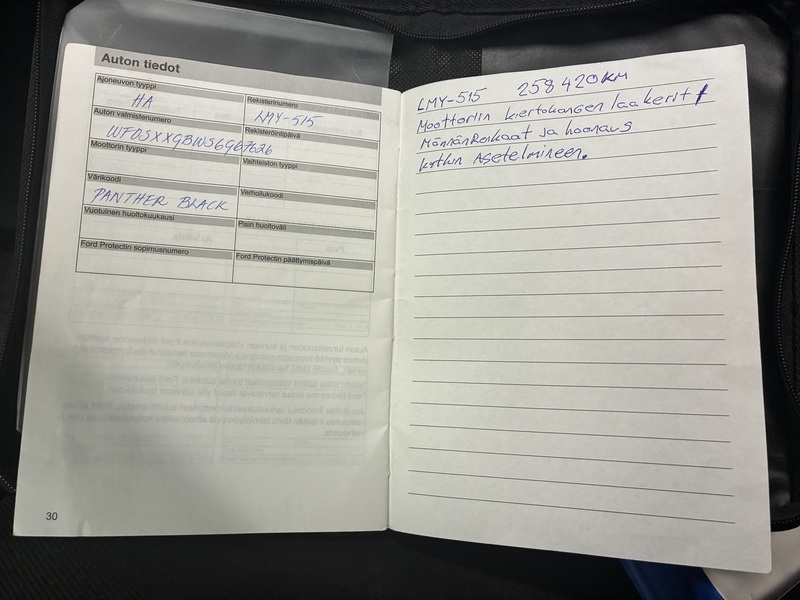 Auton tiedot
Ajoneuvon tyyppi
HA
Rekisterinumero
LMY-515
Auton valmistenumero
WF0SXXGBWS6G67626
Rekisteröintipäivä
Moottorin tyyppi
Vaihteiston tyyppi
Värikoodi
PANTHER BLACK
Verhoilukoodi
Vuotuinen huoltokuukausi
Pisin huoltoväli
Ford Protectin sopimusnumero
Ford Protectin päättymispäivä
30
LMY-515 258420KM
Moottoriin kiertokangen laakerit
Männänrenkaat ja hoonaus
kytkin Asetelmineen.